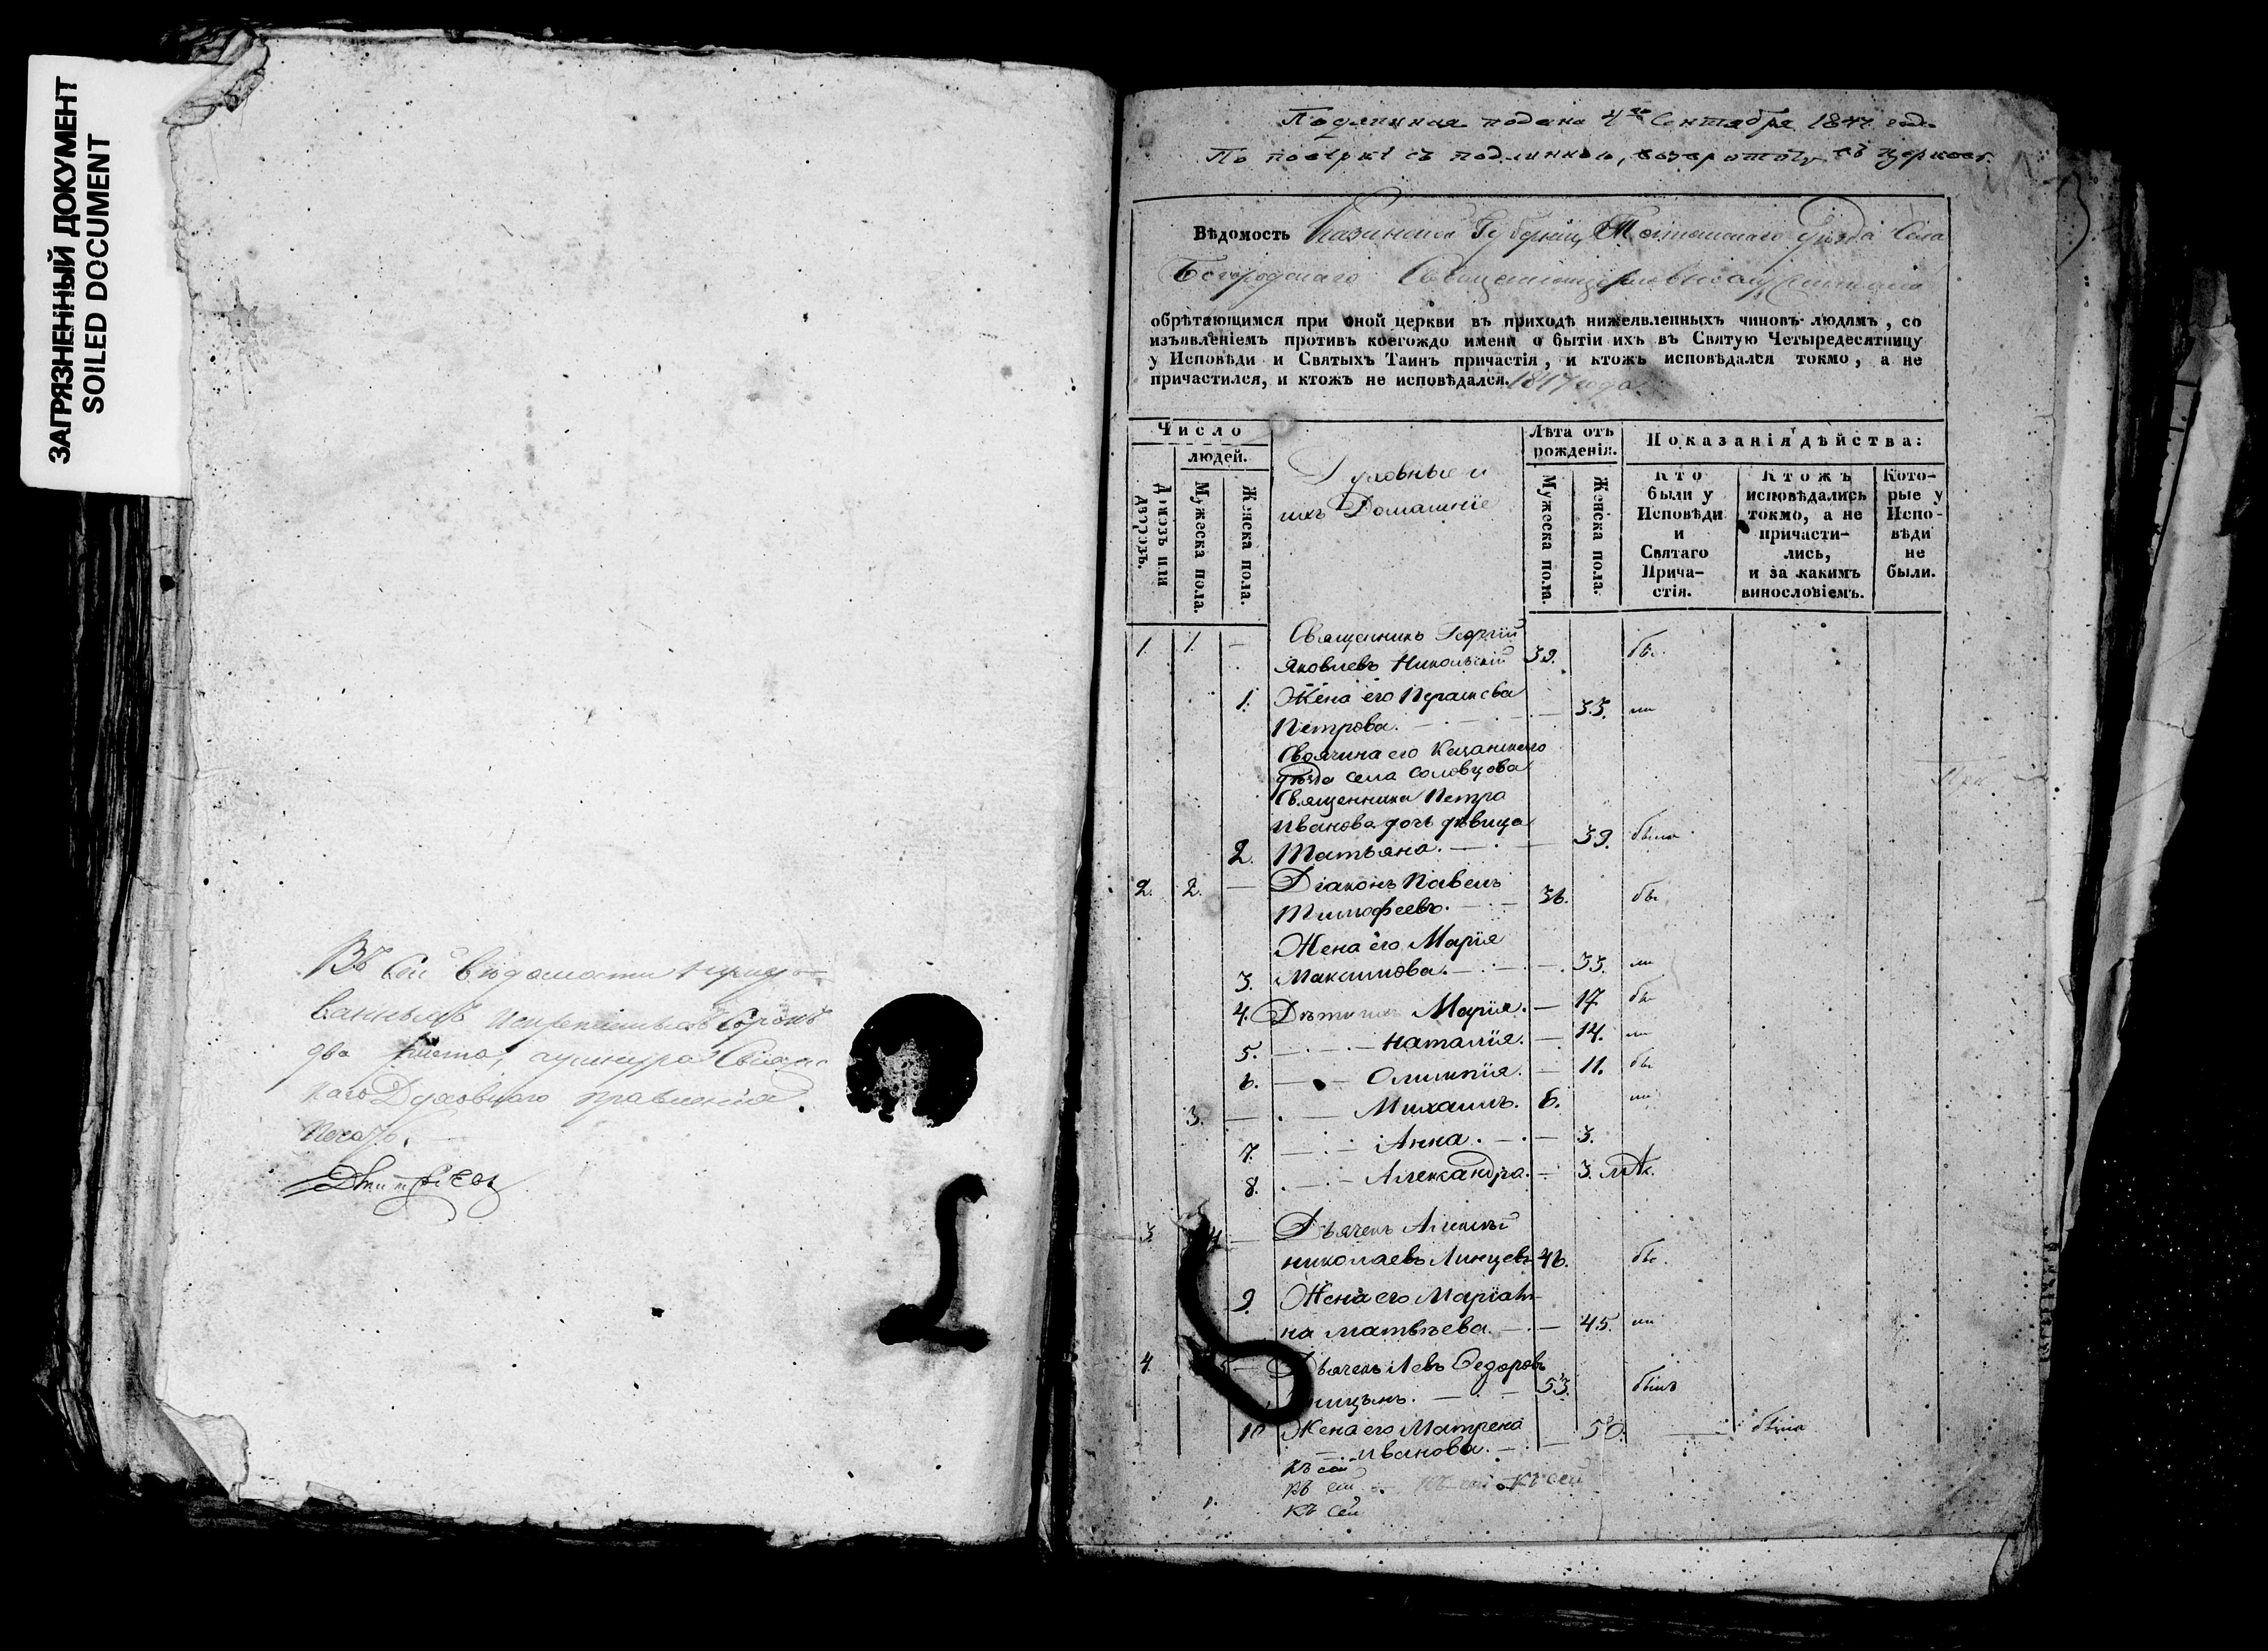 ЗАГРЯЗНЕННЫЙ ДОКУМЕНТ
SOILED DOCUMENT
Въ сей ведомости
ванныхъ Сорокъ
два листа,
наго Духовнаго правленія
печать.
Подлинная подана 4го Сентября 1847 года
По поверкѣ съ подлинною, въ церковь.
Вѣдомость Казанской Губерніи Уѣзда Села
Богородскаго
обрѣтающимся при оной церкви въ приходѣ нижеявленныхъ чиновъ людямъ, со
изъявленіемъ противъ коегождо имени о бытіи ихъ въ Святую Четыредесятницу
у Исповѣди и Святыхъ Таинъ причастія, и ктожъ исповѣдался токмо, а не
причастился, и ктожъ не исповѣдался. 1847 года
Число
людей.
Домовъ или дворовъ.
Мужеска пола.
Женска пола.
Духовные и
ихъ Домашніе
Лѣта отъ
рожденія.
Мужеска пола.
Женска пола.
Показанія дѣйства:
Кто
были у
Исповѣди
и
Святаго
Прича-
стія.
Ктожъ
исповѣдались
токмо, а не
причасти-
лись,
и за какимъ
винословіемъ.
Кото-
рые у
Испо-
вѣди
не
были.
1. 1. — Священникъ Георгій
Яковлевъ Никольскій 39. бы.
1. Жена его Параскева
Петрова. — 33.
Своячина его Казанскаго
уѣзда села Соловцова
Священника Петра
Иванова дочь дѣвица
2. Татьяна. — 39. была
2. 2. — Діаконъ Павелъ
Тимофеевъ. — 36. бы
Жена его Марія
3. Максимова. — 33.
4. Дѣти ихъ Марія. — 17 бы
5. — Наталія. — 14.
6. — Олимпія. — 11. бы
3. — Михаилъ. 6.
7. — Анна. — 3.
8. — Александра. — 3.
3. 4 — Дьячекъ Алексѣй
Николаевъ 46. бы.
9. Жена его Маріам-
на Матвѣева. — 45.
4. 5 — Дьячекъ Левъ Федоровъ
53. былъ
10 Жена его Матрена 50. — была
Иванова. —
къ сей
къ сей къ сей
къ сей